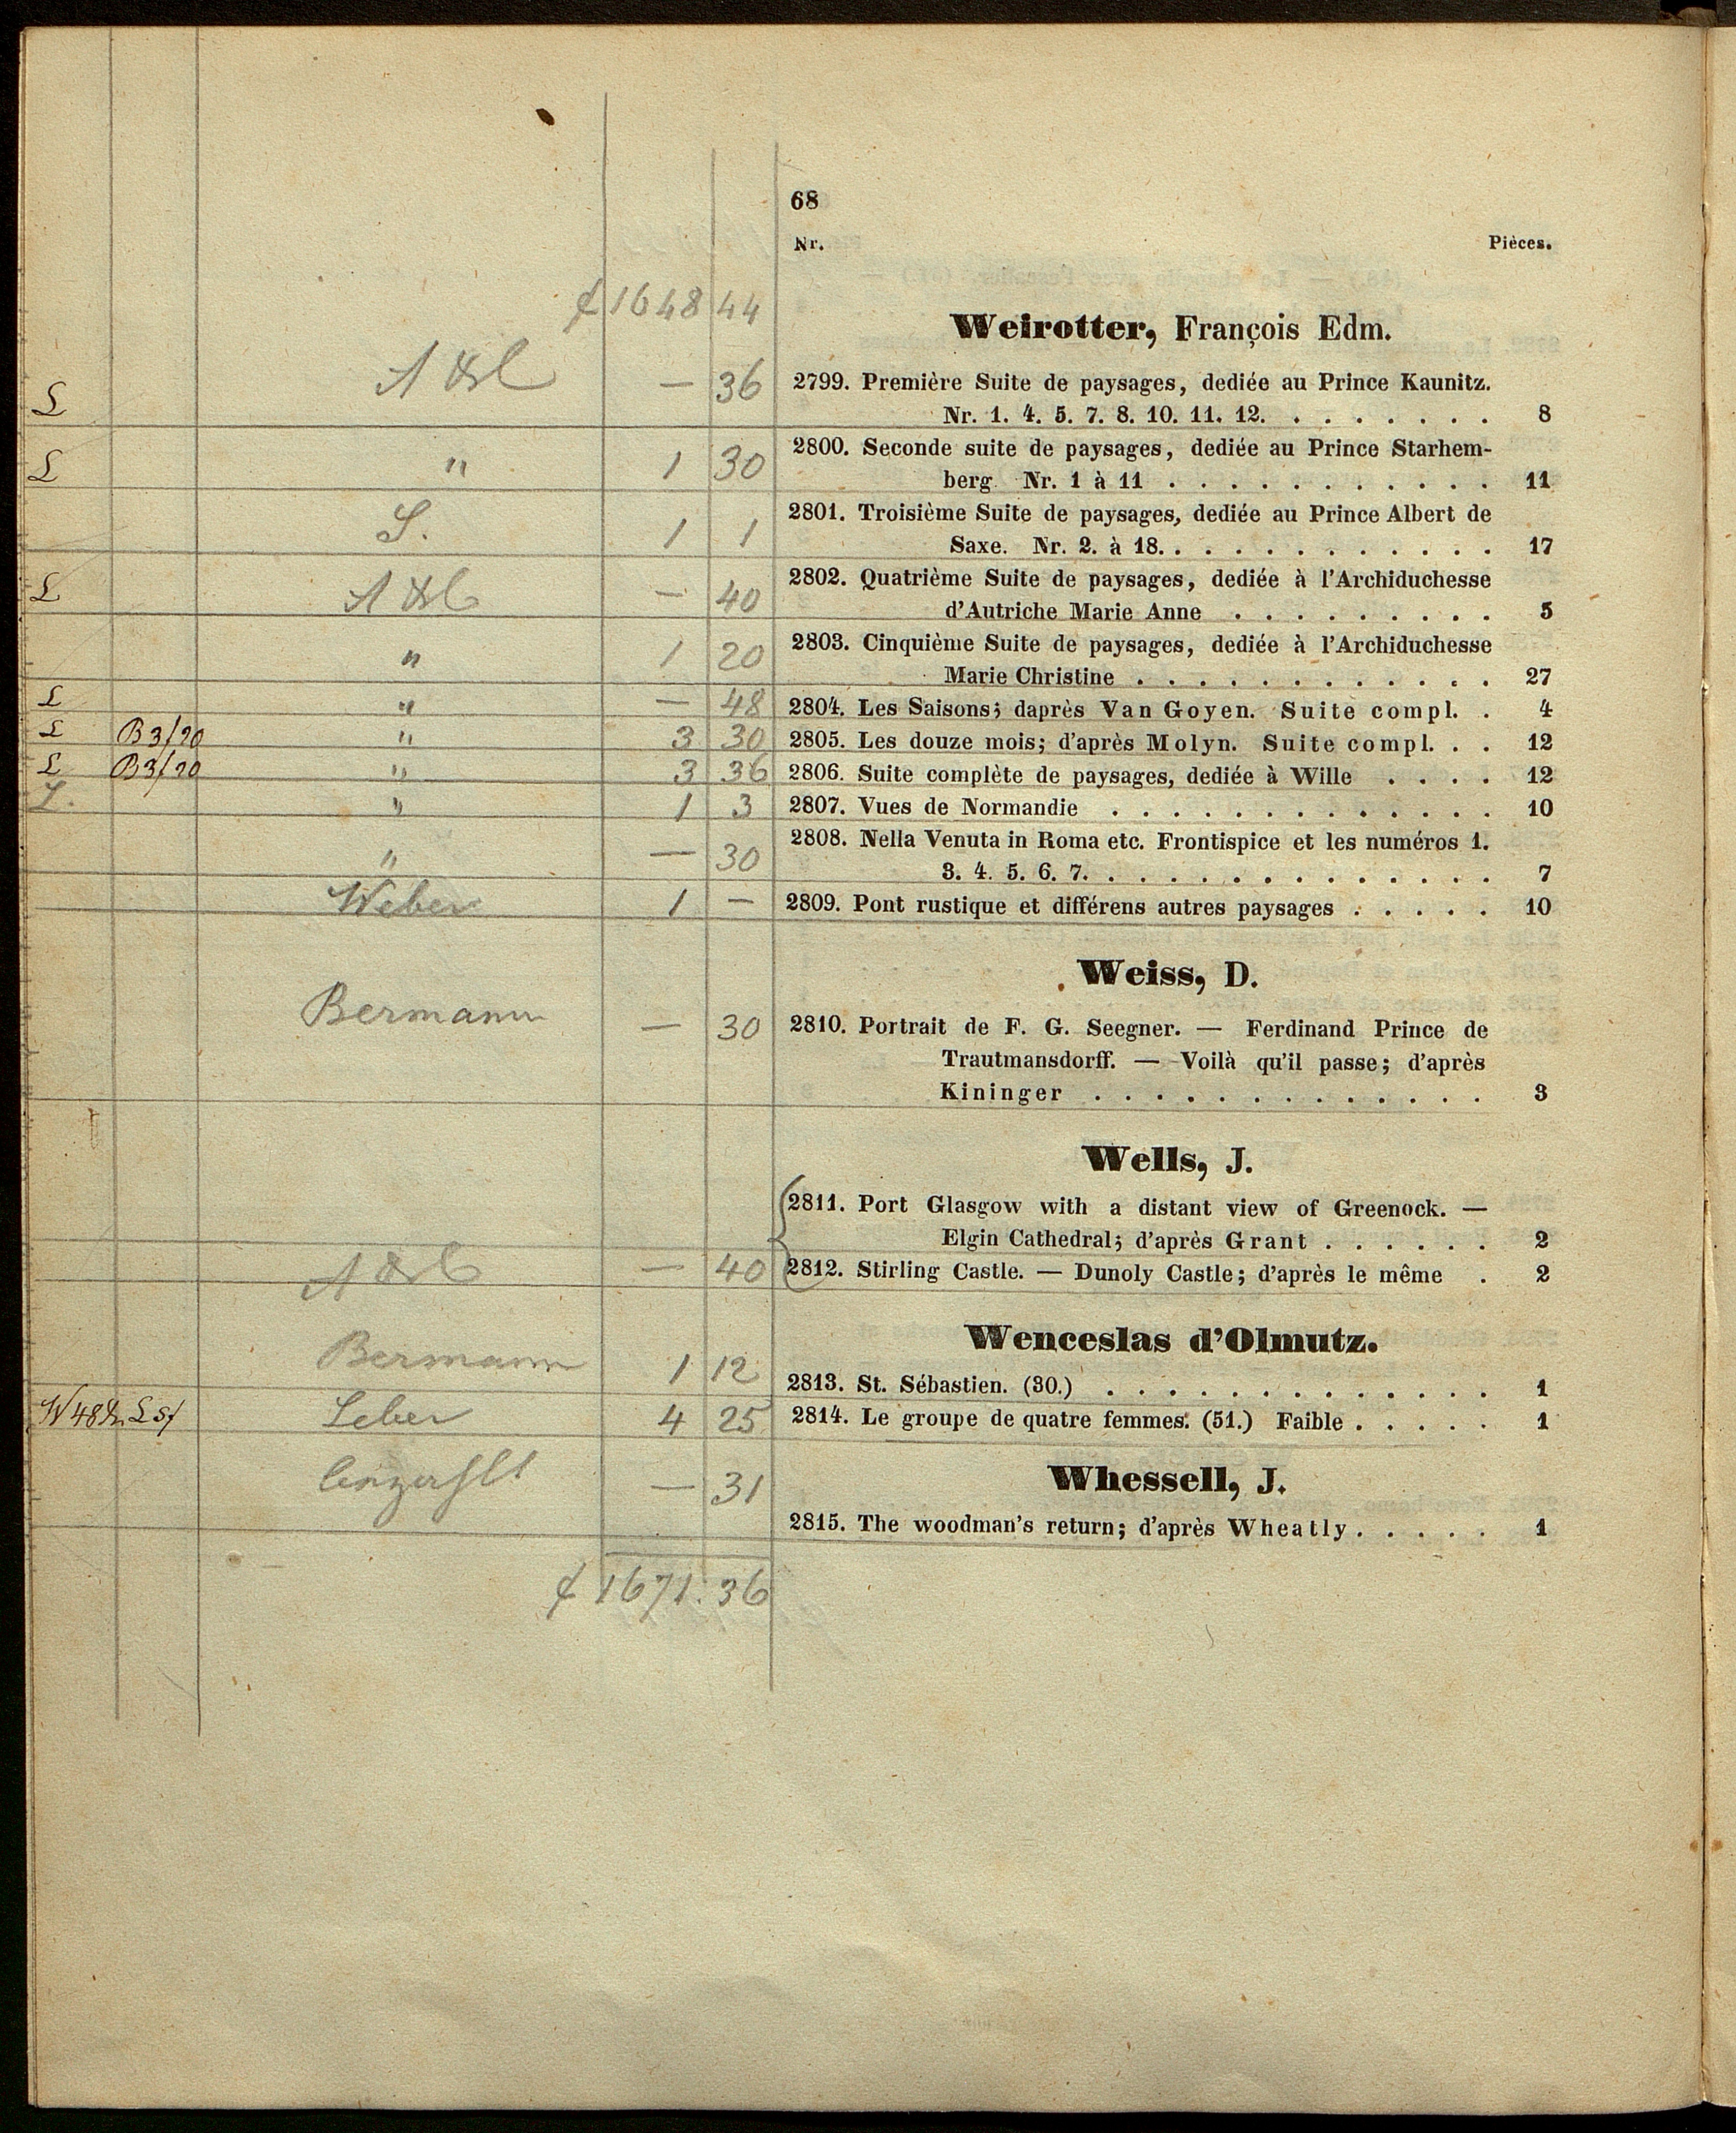 68
Nr. Pièces.
1648 44
Weirotter, François Edm.
L — 36 2799. Première Suite de paysages, dediée au Prince Kaunitz.
Nr. 1. 4. 5. 7. 8. 10. 11. 12. . . . . . . . 8
L " 1 30 2800. Seconde suite de paysages, dediée au Prince Starhem-
berg. Nr. 1 à 11 . . . . . . . . . . . 11
S. 1 1 2801. Troisième Suite de paysages, dediée au Prince Albert de
Saxe. Nr. 2. à 18. . . . . . . . . . . . 17
L — 40 2802. Quatrième Suite de paysages, dediée à l'Archiduchesse
d'Autriche Marie Anne . . . . . . . . . 5
" 1 20 2803. Cinquième Suite de paysages, dediée à l'Archiduchesse
Marie Christine . . . . . . . . . . . . 27
L " — 48 2804. Les Saisons; daprès Van Goyen. Suite compl. . 4
L B3/20 " 3 30 2805. Les douze mois; d'après Molyn. Suite compl. . . 12
L B3/20 " 3 36 2806. Suite complète de paysages, dediée à Wille . . . . 12
L. " 1 3 2807. Vues de Normandie . . . . . . . . . . . . . 10
" — 30 2808. Nella Venuta in Roma etc. Frontispice et les numéros 1.
3. 4. 5. 6. 7. . . . . . . . . . . . . . . 7
Weber 1 — 2809. Pont rustique et différens autres paysages . . . . . 10
Weiss, D.
Bermann — 30 2810. Portrait de F. G. Seegner. — Ferdinand Prince de
Trautmansdorff. — Voilà qu'il passe; d'après
Kininger . . . . . . . . . . . . . 3
Wells, J.
2811. Port Glasgow with a distant view of Greenock. —
Elgin Cathedral; d'après Grant . . . . . . 2
— 40 2812. Stirling Castle. — Dunoly Castle; d'après le même . 2
Wenceslas d'Olmutz.
Bermann 1 12 2813. St. Sébastien. (30.) . . . . . . . . . . . . . 1
4 25 2814. Le groupe de quatre femmes. (51.) Faible . . . . . 1
Whessell, J.
— 31 2815. The woodman's return; d'après Wheatly . . . . . 1
1671. 36